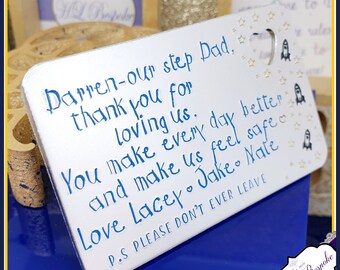 HL Bespoke
Darren-our step Dad,
thank you for
loving us.
You make every day better
and make us feel safe
Love Lacey♡Jake♡Nate
P.S PLEASE DON'T EVER LEAVE
Bespoke